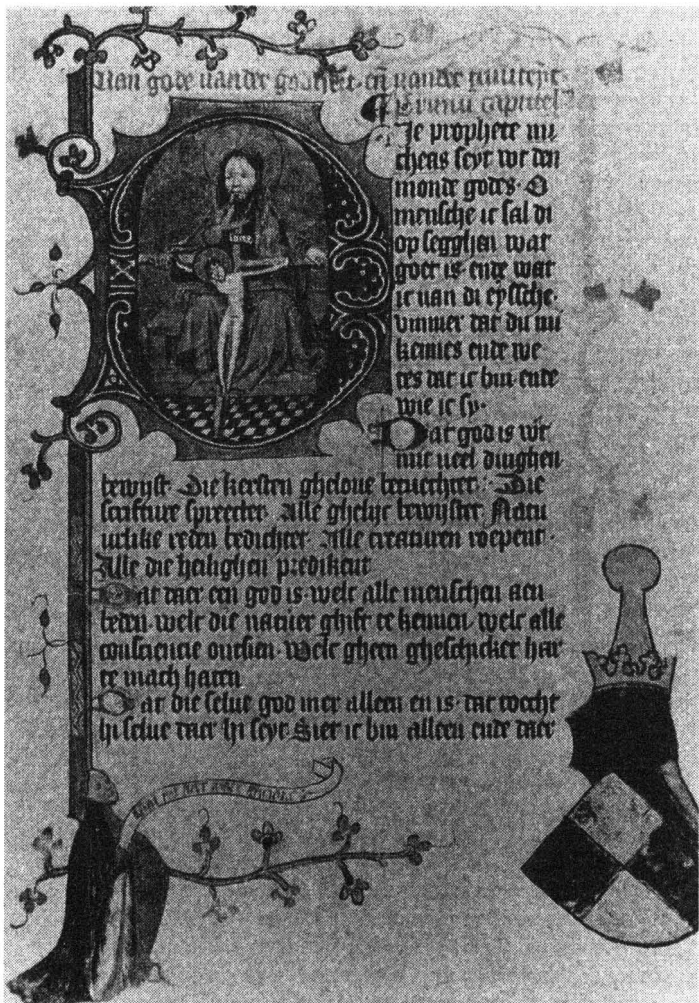 Van gode vander godheit en vander triniteyt
capittel
Die prophete mi
cheas seyt wt den
monde gods O
mensche ic sal di
op segghen wat
goet is ende wat
ic van di eyssche
ummer dat du mi
kennes ende we
tes dat ic bin ende
wie ic sy
Dat god is wert
mit veel dinghen
bewyst Die kersten gheloue betuechtet Die
scrifture spreectet Alle ghelyc bewystet Natu
erlike reden bedichtet Alle creaturen roepent
Alle die heilighen predikent
Dat daer een god is welc alle menschen aen
beden welc die natuer ghift te kennen welc alle
consciencie ontsien welc gheen gheschicket har
te mach haten
Dat die selue god mer alleen en is dat toecht
hi selue daer hi seyt Siet ic bin alleen ende daer